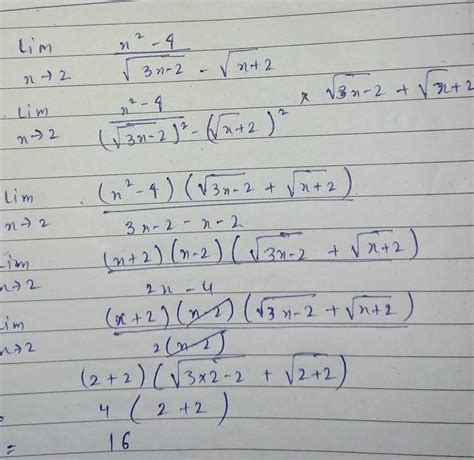 Lim x→2 (x² - 4) / (√(3x-2) - √(x+2))
Lim x→2 (x² - 4) / ((√(3x-2))² - (√(x+2))²) × √(3x-2) + √(x+2)
Lim x→2 (x² - 4)(√(3x-2) + √(x+2)) / (3x - 2 - x - 2)
Lim x→2 (x+2)(x-2)(√(3x-2) + √(x+2)) / (2x - 4)
Lim x→2 (x+2)(x-2)(√(3x-2) + √(x+2)) / 2(x-2)
(2+2)(√(3×2-2) + √(2+2))
4 ( 2 + 2 )
= 16